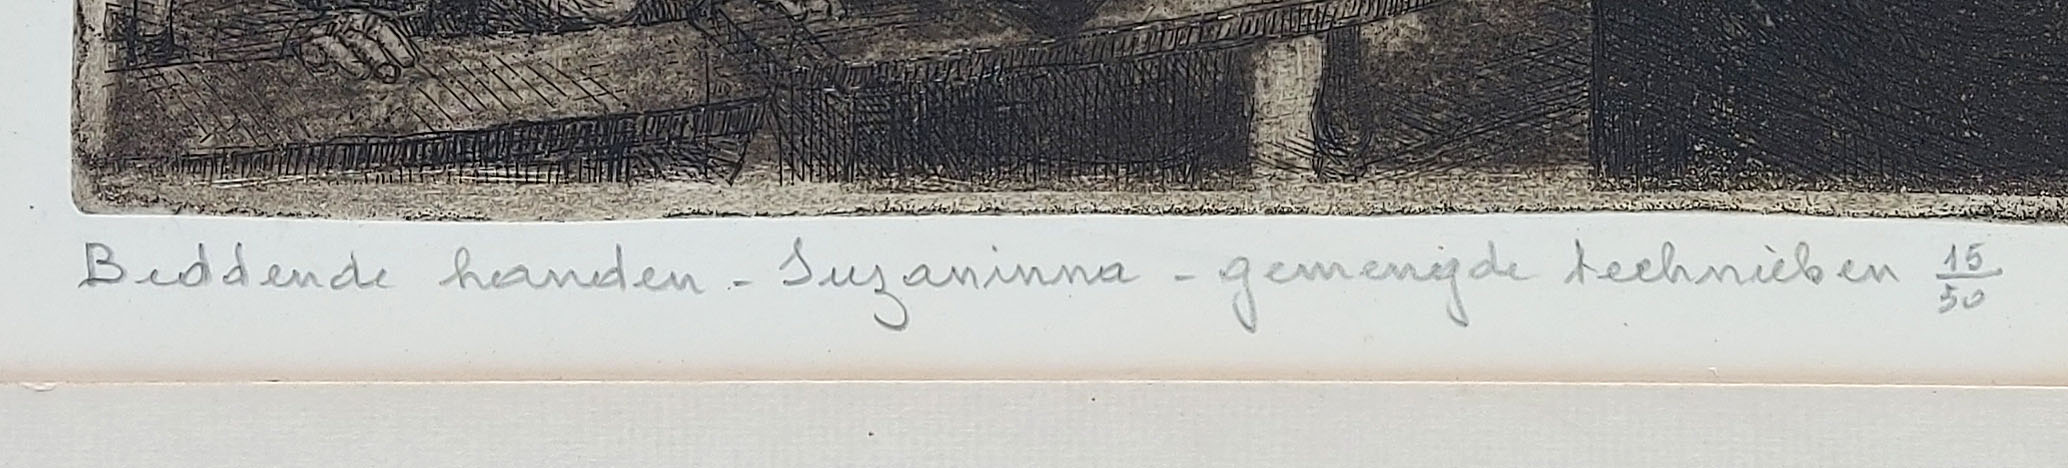 Beddende handen - Suzaninna - gemengde technieken 15/50